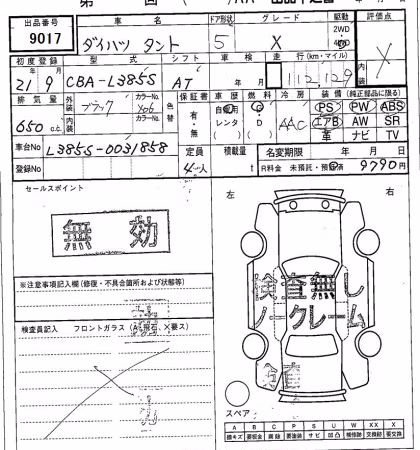 出品番号 車名 ドア形状 グレード 駆動 評価点
9017 ダイハツ タント 5 X 2WD 4WD X
初度登録 型式 シフト 車検 走行(km・マイル) 内装
21年9月 CBA-L385S AT 年 月 112,129
排気量 外装 ブラック カラーNo. X06 色替 保証書 車歴 燃料 冷房 装備 (純正部品に限る)
650 c.c. 内装 カラーNo. 有・無 自家用 レンタ G・D AAC PS PW ABS
エアB AW SR
革 ナビ TV
車台No L385S-0031858 定員 積載量 名変期限 年 月 日
登録No 4人 t R料金 未預託・預託済 9790円
セールスポイント 左 右
無効
検査無し
ノークレーム
※注意事項記入欄(修復・不具合箇所および状態等)
検査員記入 フロントガラス(A、飛石、X要ス)
スペア
A B C P S U W XX X
線キズ 要鈑金 腐蝕 要塗装 サビ 凹凸 補修跡 交換跡 要交換